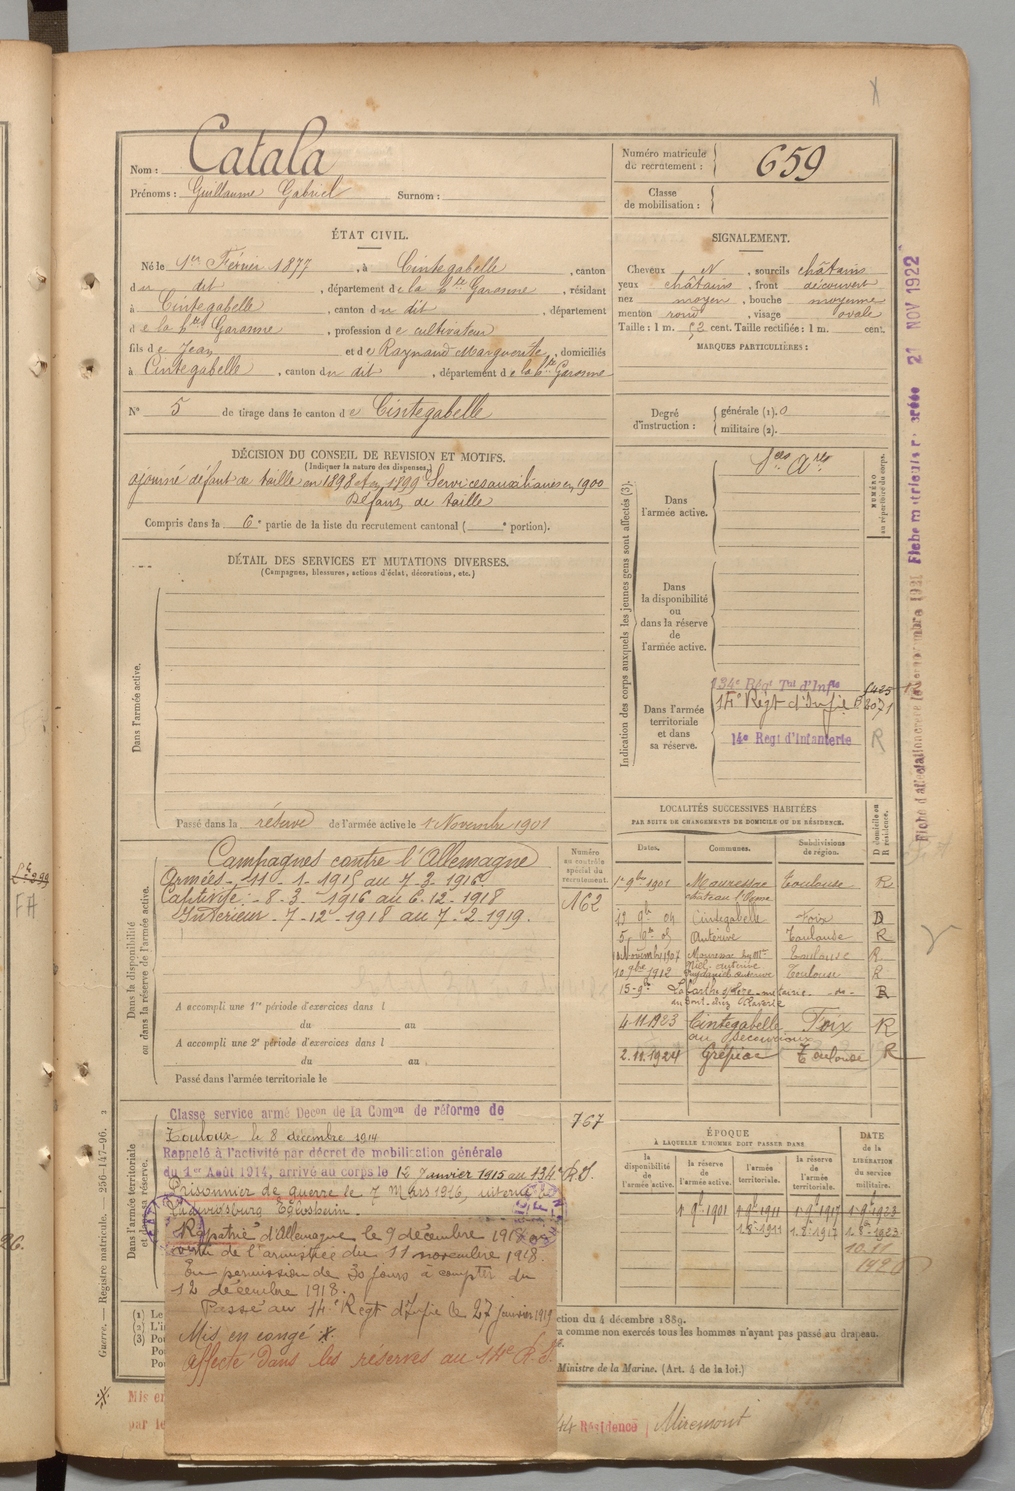 Nom : Catala
Prénoms : Guillaume Gabriel Surnom :
Numéro matricule
du recrutement : 659
Classe
de mobilisation :
ÉTAT CIVIL.
Né le 1er Février 1877, à Cintegabelle, canton
du dit, département de la Hte Garonne, résidant
à Cintegabelle, canton du dit, département
de la Hte Garonne, profession de cultivateur
fils de Jean et de Raynaud Marguerite, domiciliés
à Cintegabelle, canton du dit, département de la Hte Garonne
N° 5 de tirage dans le canton de Cintegabelle
SIGNALEMENT.
Cheveux N, sourcils châtains
yeux châtains, front découvert
nez moyen, bouche moyenne
menton rond, visage ovale
Taille : 1 m. 52 cent. Taille rectifiée : 1 m. cent.
MARQUES PARTICULIÈRES :
Degré
d'instruction :
générale (1). 0
militaire (2).
DÉCISION DU CONSEIL DE REVISION ET MOTIFS.
(Indiquer la nature des dispenses.)
ajourné défaut de taille en 1898 et en 1899 Services auxiliaires en 1900
Défaut de taille
Compris dans la 6e partie de la liste du recrutement cantonal ( e portion).
DÉTAIL DES SERVICES ET MUTATIONS DIVERSES.
(Campagnes, blessures, actions d'éclat, décorations, etc.)
Dans l'armée active.
Passé dans la réserve de l'armée active le 1 Novembre 1901
Indication des corps auxquels les jeunes gens sont affectés (3).
NUMÉRO
au répertoire du corps.
Dans
l'armée active.
Dans
la disponibilité
ou
dans la réserve
de
l'armée active.
Dans l'armée
territoriale
et dans
sa réserve.
134e Régt Tal d'Infie
14e Régt d'Infie
14e Regt d'Infanterie
R
Dans la disponibilité
ou dans la réserve de l'armée active.
Campagnes contre l'Allemagne
Armées - 11 - 1 - 1915 au 7 - 3 - 1916
Captivité - 8 - 3 - 1916 au 6 - 12 - 1918
Intérieur - 7 - 12 - 1918 au 7 - 2 - 1919.
Numéro
au contrôle
spécial du
recrutement.
162
A accompli une 1re période d'exercices dans l
du au
A accompli une 2e période d'exercices dans l
du au
Passé dans l'armée territoriale le
LOCALITÉS SUCCESSIVES HABITÉES
PAR SUITE DE CHANGEMENTS DE DOMICILE OU DE RÉSIDENCE.
Dates. Communes. Subdivisions
de région.
D domicile ou
R résidence.
1er 9bre 1901 Mauressac Toulouse R
Cintegabelle Foix D
Auterive Toulouse R
Toulouse R
10 9bre 1912 Toulouse R
4-11-1923 Cintegabelle Foix R
2.11.1924 Grépiac Toulouse R
Dans l'armée territoriale
et dans sa réserve.
Classé service armé Decon de la Comon de réforme de
Toulouse le 8 décembre 1914
Rappelé à l'activité par décret de mobilisation générale
du 1er Août 1914, arrivé au corps le 12 Janvier 1915 au 134e R.I.
Prisonnier de guerre le 7 Mars 1916, interné à
Ludwisburg Eglosheim.
Rapatrié d'Allemagne le 9 décembre 1918 en
vertu de l'armistice du 11 novembre 1918.
En permission de 30 jours à compter du
12 décembre 1918.
Passé au 14e Régt d'Infie le 27 janvier 1919
Mis en congé
Affecté dans les réserves au 14e R.I.
767
ÉPOQUE
À LAQUELLE L'HOMME DOIT PASSER DANS
la
disponibilité
de l'armée active.
la réserve
de
l'armée active.
l'armée
territoriale.
la réserve
de l'armée
territoriale.
DATE
de la
LIBÉRATION
du service
militaire.
1 9b 1901 1 9b 1911 1 9b 1917 1 9b 1923
1.8.1911 1.8.1917
ction du 4 décembre 1889.
a comme non exercés tous les hommes n'ayant pas passé au drapeau.
Ministre de la Marine. (Art. 4 de la loi.)
(1) Le
(2) L'i
(3) Pou
Pou
Pou
Mis en
par le
Résidence Miremont
Guerre. — Registre matricule. — 256-147-96.
21 NOV 1922
FA